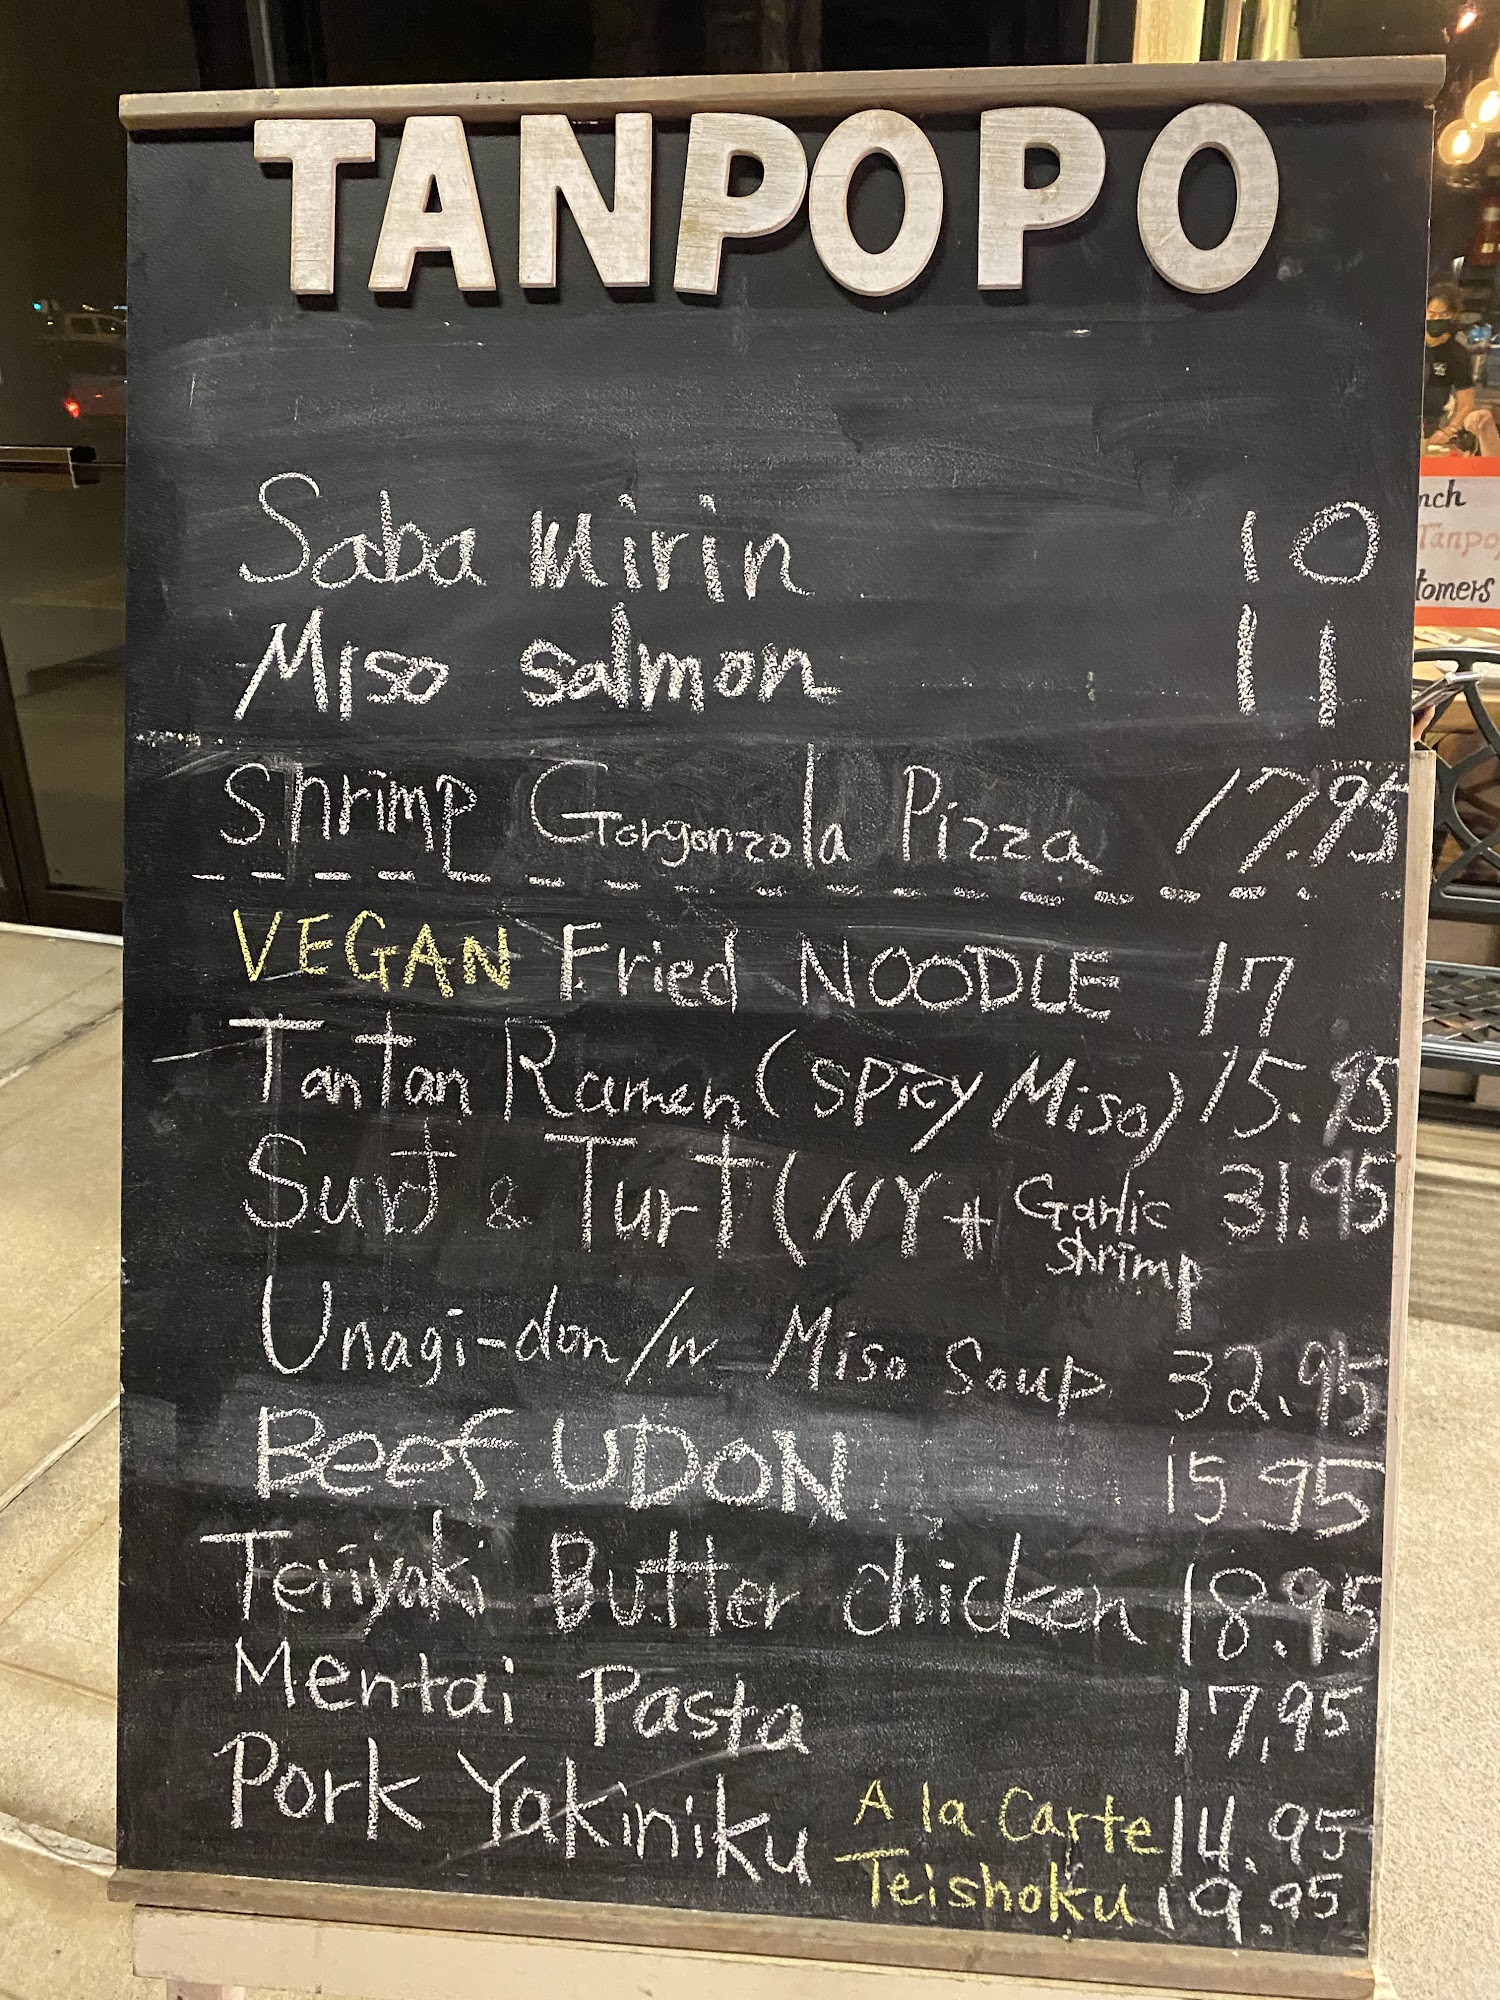 TANPOPO
Saba Mirin 10
Miso Salmon 11
Shrimp Gorgonzola Pizza 17.95
VEGAN Fried NOODLE 17
TanTan Ramen (Spicy Miso) 15.95
Surf & Turf (NY + Garlic Shrimp 31.95
Unagi-don /w Miso Soup 32.95
Beef UDON 15.95
Teriyaki Butter chicken 18.95
Mentai Pasta 17.95
Pork Yakiniku A la Carte 14.95
Teishoku 19.95
nch
Tanpo
tomers